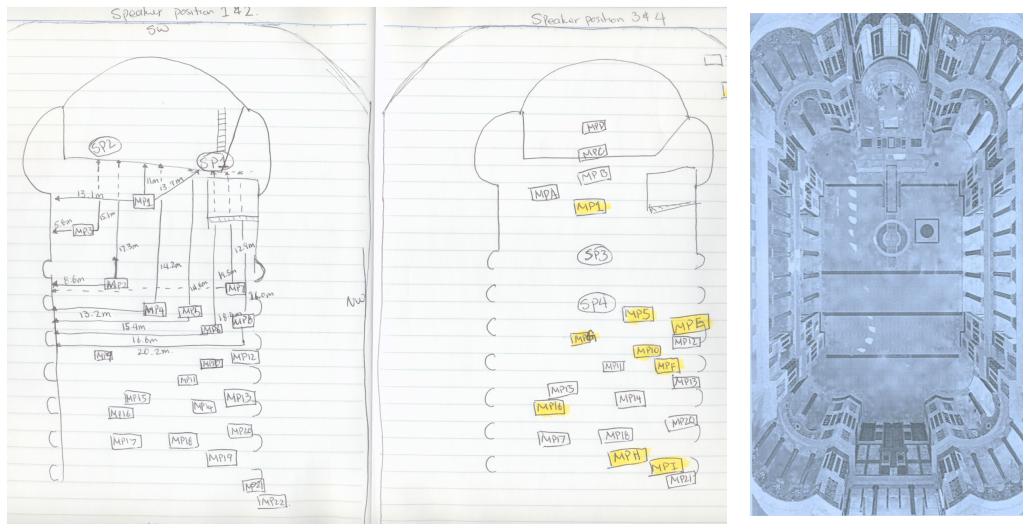 Speaker position 1&2.
SW
SP2
SP1
11m
13.7m
13.1m
MP1
5.6m
MP3
15.1m
17.3m
12.9m
14.2m
8.6m
MP2
MP7
13.2m
MP4
MP5
15.4m
MP6
MP8
16.6m
20.2m
MP12
MP11
MP15
MP14
MP13
MP16
MP20
MP17
MP18
MP19
MP21
MP22
NW
Speaker position 3&4
MPD
MPC
MPB
MPA
MP1
SP3
SP4
MP5
MPE
MP12
MP10
MP11
MPF
MP13
MP15
MP14
MP16
MP20
MP17
MP18
MPH
MPI
MP21